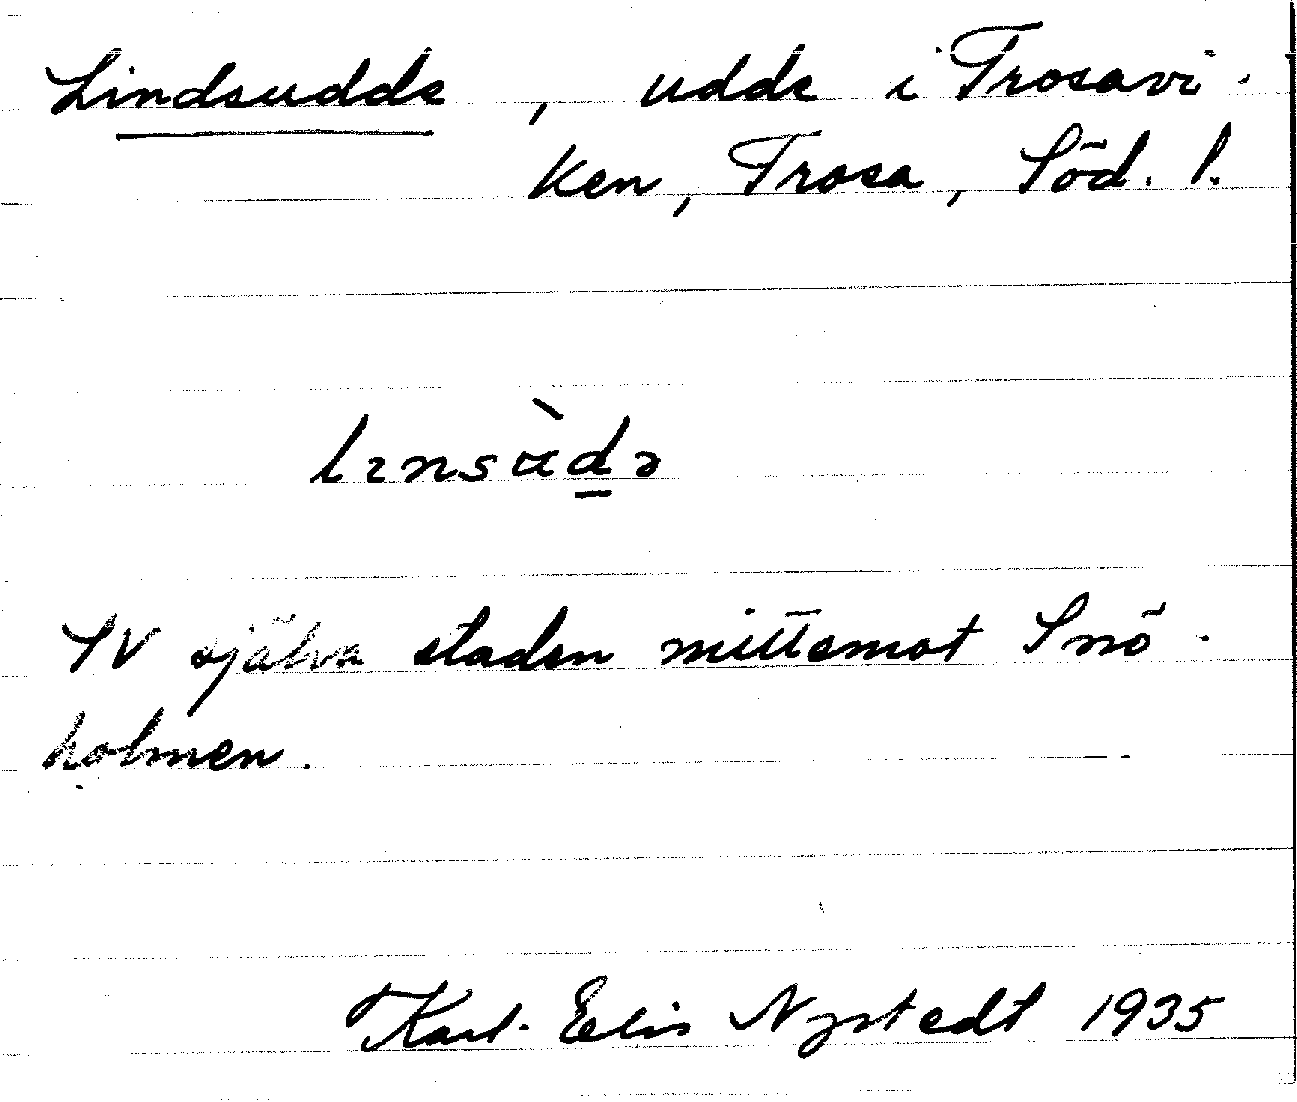 Lindsudde, udde i Trosavi-
ken, Trosa, Söd. l.
SV själva staden mittemot Snö-
holmen.
Karl-Elis Nystedt 1935